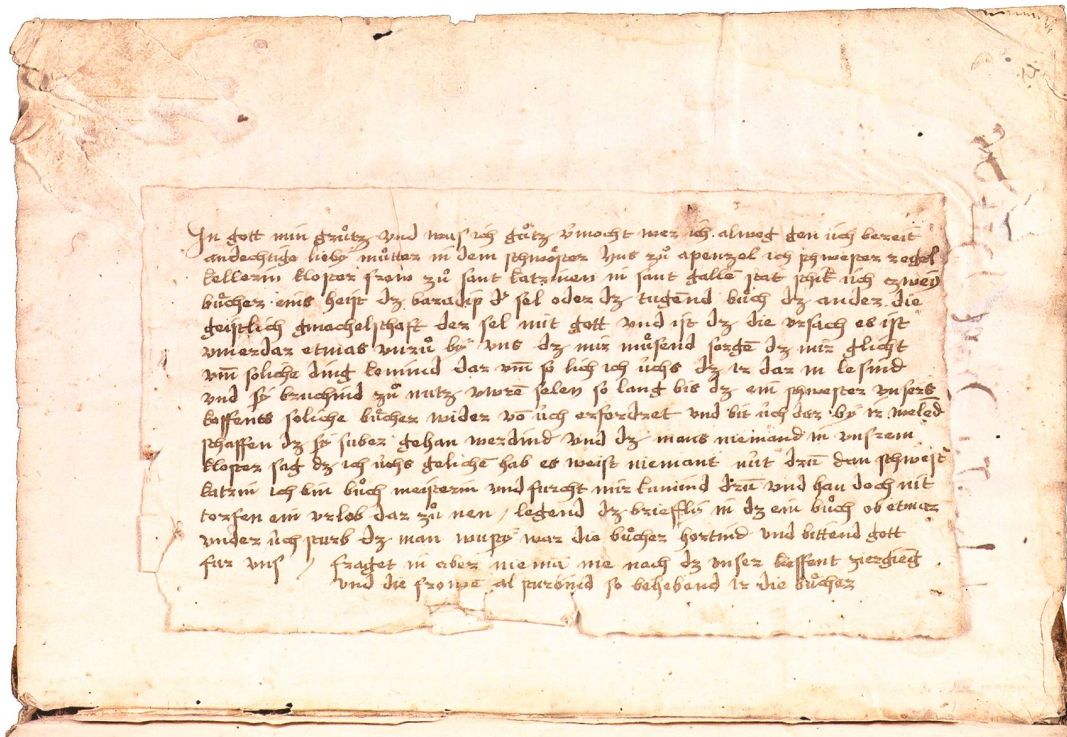 In gott min grůtz vnd was ich gůtz v̄mocht wer ich alweg gen ŭch bereit
andechtige lieby můtter in dem schwöster hus zů apenzol ich schwester regel
kellerin kloster frow zů sant katrinen in sant gallē stat schik ŭch czweū
bůcher eins heist dz baradip d' sel oder dz tugend bůch dz ander die
geistlich gmachelschaft der sel mit gott vnd ist dz die vrsach es ist
vmerdar etwas vnrů by vns dz mir můsend sorgē dz mir ẏlicht
vm̄ soliche ding komind dar vm̄ so lich ich ŭchs dz ir dar in lesind
vnd sy bruchind zů nutz vwrē selen so lang bis dz ein schwester vnsers
koffents soliche bůcher wider vō ŭch erfordret vnd bit ŭch dar by ir welēd
schaffen dz sy suber gehan werdind vnd dz mans niemand in vnsrem
kloster sag dz ich ŭchs gelichē hab es weist niemant nŭt drū dan schwest'
katrin ich bin bůch meisterin vnd furcht mir kumind drū vnd han doch nit
torfen ein vrlob dar zů nen / legend dz briefflÿ in dz ein bůch ob etwar
vnder ŭch sturb dz man wusty war die bůcher hortind vnd bittend gott
fur vns / fraget in aber niemā me nach dz vnser koffent ziergieng
vnd die frowē al sturbind so behebend ir die bůcher